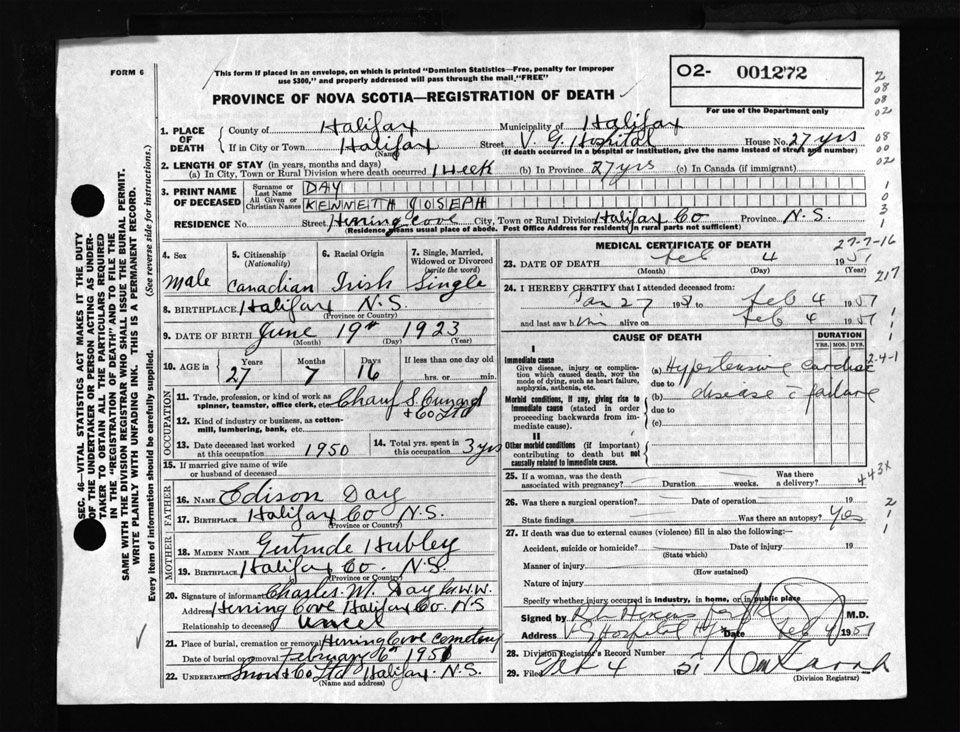 FORM 6
This form if placed in an envelope, on which is printed "Dominion Statistics—Free, penalty for improper
use $300," and properly addressed will pass through the mail "FREE"
O2- 001272
For use of the Department only
PROVINCE OF NOVA SCOTIA—REGISTRATION OF DEATH
1. PLACE OF DEATH
County of Halifax Municipality of Halifax
If in City or Town Halifax Street V. G. Hospital House No. 27 yrs
(Name) (If death occurred in a hospital or institution, give the name instead of street and number)
2. LENGTH OF STAY (in years, months and days)
(a) In City, Town or Rural Division where death occurred 1 Week (b) In Province 27 yrs (c) In Canada (if immigrant)
3. PRINT NAME OF DECEASED
Surname or Last Name DAY
All Given or Christian Names KENNETH JOSEPH
RESIDENCE No. Street Herring Cove City, Town or Rural Division Halifax Co Province N.S.
(Residence means usual place of abode. Post Office Address for residents in rural parts not sufficient)
4. Sex 5. Citizenship (Nationality) 6. Racial Origin 7. Single, Married, Widowed or Divorced (write the word)
Male Canadian Irish Single
8. BIRTHPLACE Halifax N.S.
(Province or Country)
9. DATE OF BIRTH June 19th 1923
(Month) (Day) (Year)
10. AGE in Years Months Days If less than one day old
27 7 16 hrs. or min.
OCCUPATION
11. Trade, profession, or kind of work as spinner, teamster, office clerk, etc. Chauf S. Cunard & Co Ltd
12. Kind of industry or business, as cotton-mill, lumbering, bank, etc.
13. Date deceased last worked at this occupation 1950 14. Total yrs. spent in this occupation 3 yrs
15. If married give name of wife or husband of deceased
FATHER
16. NAME Edison Day
17. BIRTHPLACE Halifax Co N.S.
(Province or Country)
MOTHER
18. MAIDEN NAME Gertrude Hubley
19. BIRTHPLACE Halifax Co. N.S.
(Province or Country)
20. Signature of informant Charles. M. Day
Address Herring Cove Halifax Co. N.S
Relationship to deceased Uncel
21. Place of burial, cremation or removal Herring Cove Cemetery
Date of burial or removal February 6th 1951
22. UNDERTAKER Snow & Co Ltd Halifax N.S.
(Name and address)
MEDICAL CERTIFICATE OF DEATH
27-7-16
23. DATE OF DEATH Feb 4 1951
(Month) (Day) (Year)
217
24. I HEREBY CERTIFY that I attended deceased from:
Jan 27 19 to Feb 4 1951
and last saw him alive on Feb 4 1951
CAUSE OF DEATH
DURATION
YRS. MOS. DYS.
I
Immediate cause
Give disease, injury or complication which caused death, not the mode of dying, such as heart failure, asphyxia, asthenia, etc.
(a) Hypertensive cardiac
due to
(b) disease c failure
Morbid conditions, if any, giving rise to immediate cause (stated in order proceeding backwards from immediate cause).
due to
(c)
II
Other morbid conditions (if important) contributing to death but not causally related to immediate cause.
25. If a woman, was the death associated with pregnancy? Duration weeks. Was there a delivery?
443X
26. Was there a surgical operation? Date of operation 19
State findings Was there an autopsy? Yes
27. If death was due to external causes (violence) fill in also the following:
Accident, suicide or homicide? Date of injury 19
(State which)
Manner of injury
(How sustained)
Nature of injury
Specify whether injury occurred in industry, in home, or in public place
Signed by M.D.
Address V G Hospital Hfx Date Feb 4 1951
28. Division Registrar's Record Number
29. Filed Feb 4 51
(Division Registrar)
SEC. 46—VITAL STATISTICS ACT MAKES IT THE DUTY
OF THE UNDERTAKER OR PERSON ACTING AS UNDER-
TAKER TO OBTAIN ALL THE PARTICULARS REQUIRED
IN THE "REGISTRATION OF DEATH" AND TO FILE THE
SAME WITH THE DIVISION REGISTRAR WHO SHALL ISSUE THE BURIAL PERMIT.
WRITE PLAINLY WITH UNFADING INK. THIS IS A PERMANENT RECORD.
Every item of information should be carefully supplied. (See reverse side for instructions.)